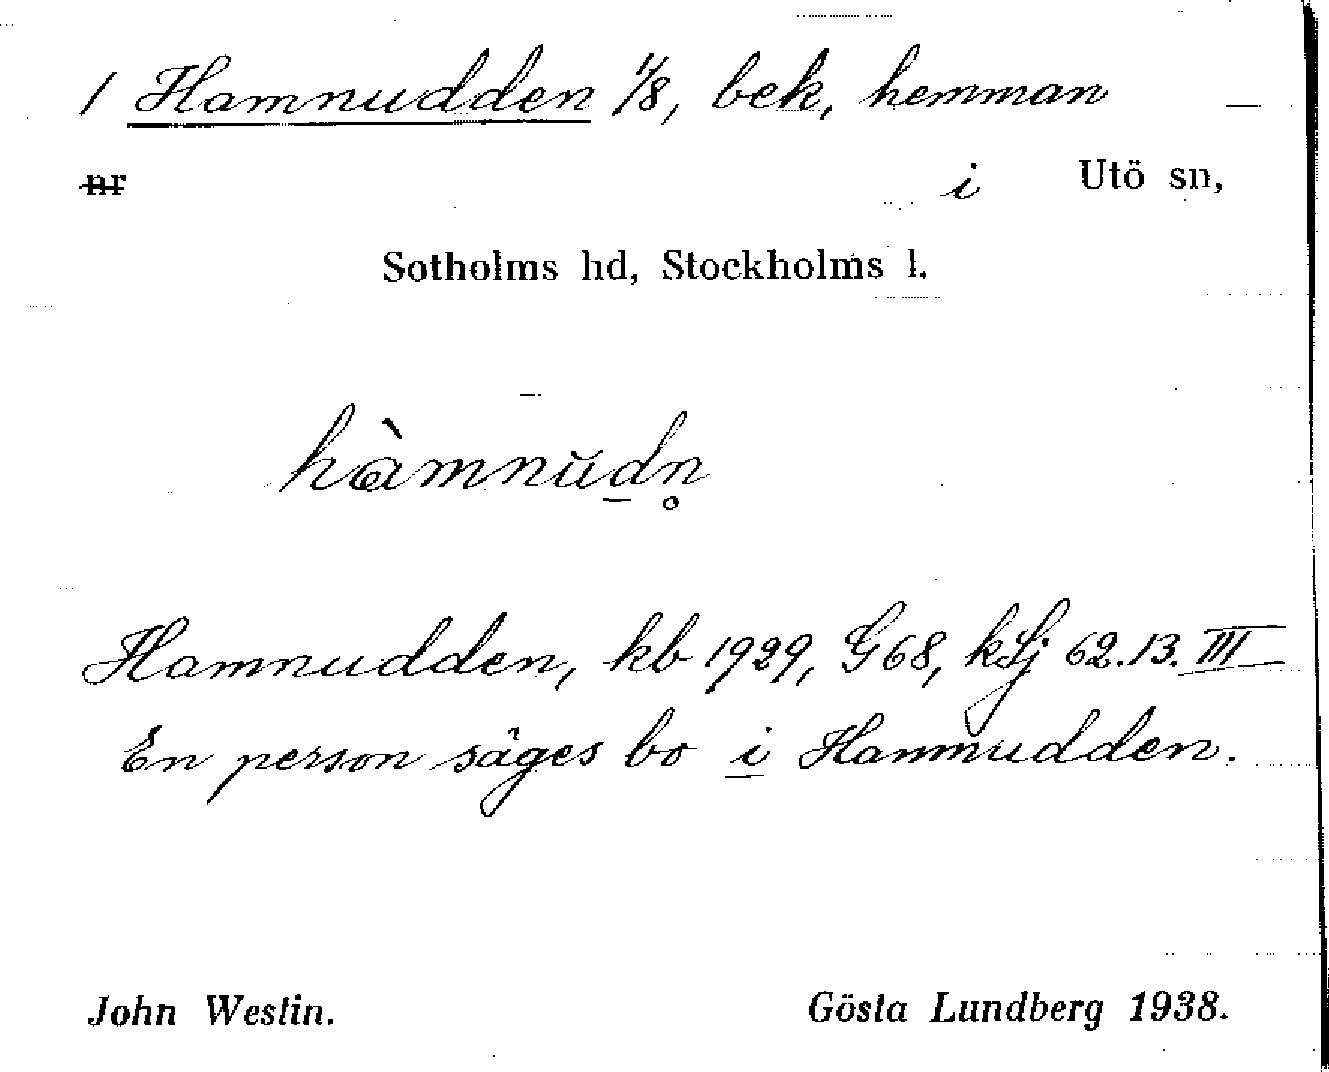 1 Hamnudden 1/8, bek, hemman
nr i Utö sn,
Sotholms hd, Stockholms l.
hàmnŭd̲n̥
Hamnudden, kb 1929, G68, kLj 62.13.III
En person säges bo i Hamnudden.
John Westin. Gösta Lundberg 1938.